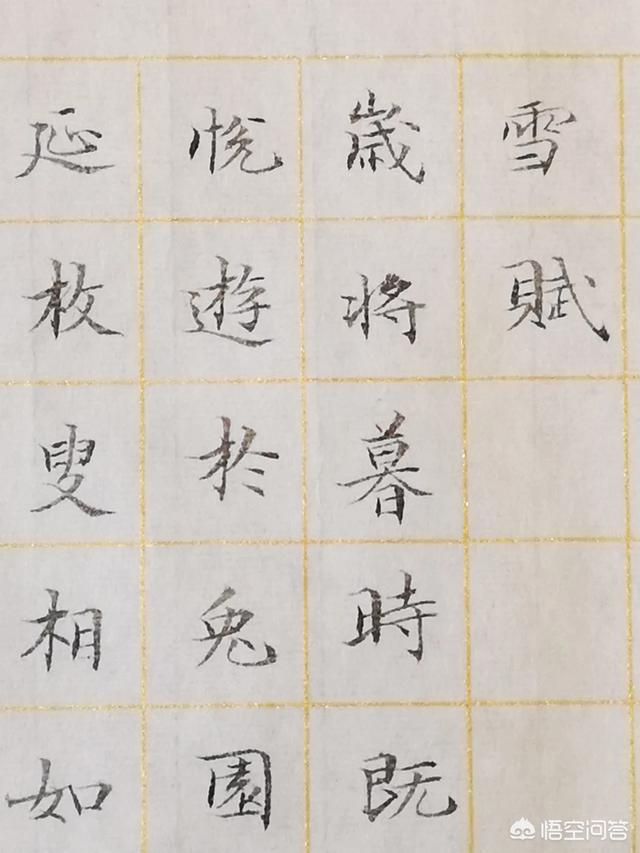 雪賦
歲将暮時既
悅遊於兔園
延枚叟相如
悟空问答